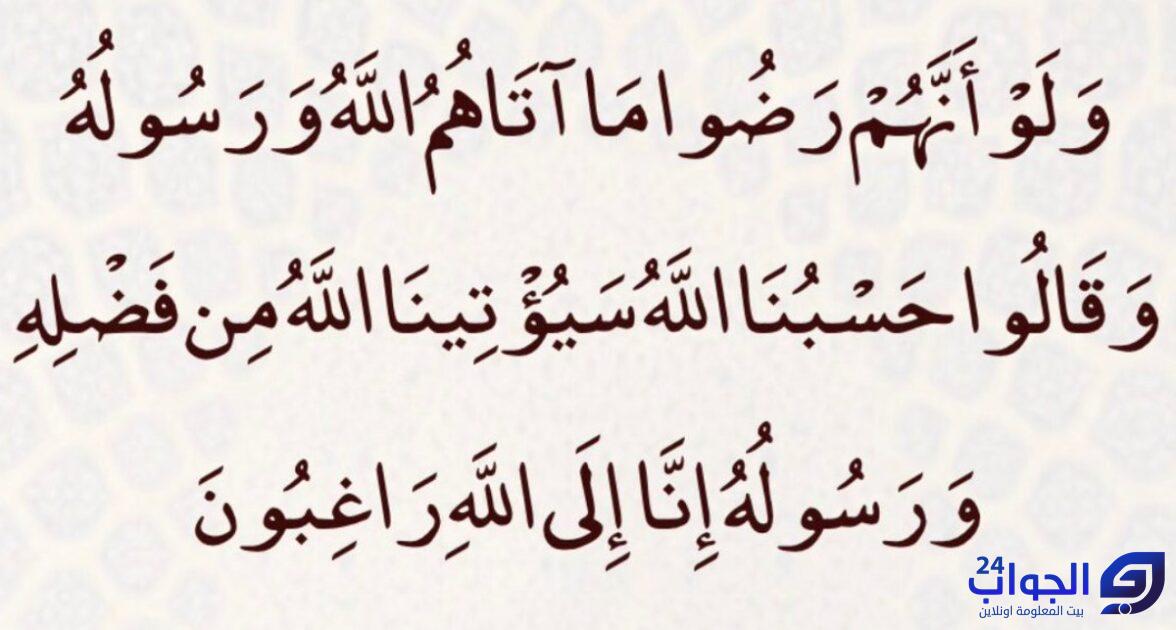 وَلَوْ أَنَّهُمْ رَضُوا مَا آتَاهُمُ اللَّهُ وَرَسُولُهُ
وَقَالُوا حَسْبُنَا اللَّهُ سَيُؤْتِينَا اللَّهُ مِن فَضْلِهِ
وَرَسُولُهُ إِنَّا إِلَى اللَّهِ رَاغِبُونَ
الجواب 24
بيت المعلومة اونلاين